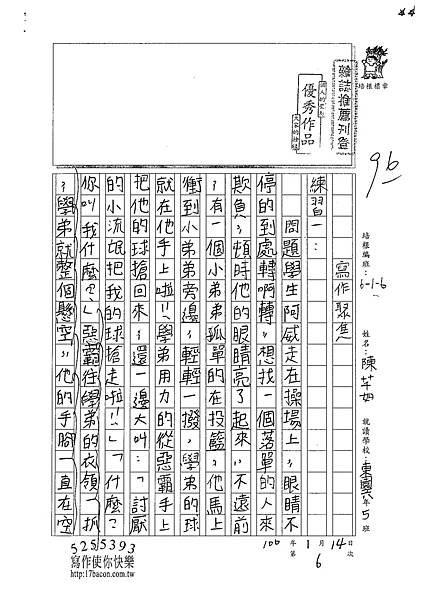 雜誌推薦刊登
優秀作品
培根標章
96
培根編班：6-1-6
姓名：陳芊如
就讀學校：東興 年5班
100年1月14日
第6次
寫作聚焦
練習一：
問題學生阿威走在操場上，眼睛不
停的到處轉啊轉，想找一個落單的人來
欺負，頓時他的眼睛亮了起來，不遠前
，有一個小弟弟孤單的在投籃，他馬上
衝到小弟弟旁邊，輕輕一撥，學弟的球
就在他手上啦！學弟用力的從惡霸手上
把他的球搶回來，還一邊大叫：「討厭
的小流氓把我的球搶走啦！」「什麼？
你叫我什麼？」惡霸往學弟的衣領一抓
，學弟就整個懸空，他的手腳一直在空
5255393
寫作使你快樂
http://17bacon.com.tw